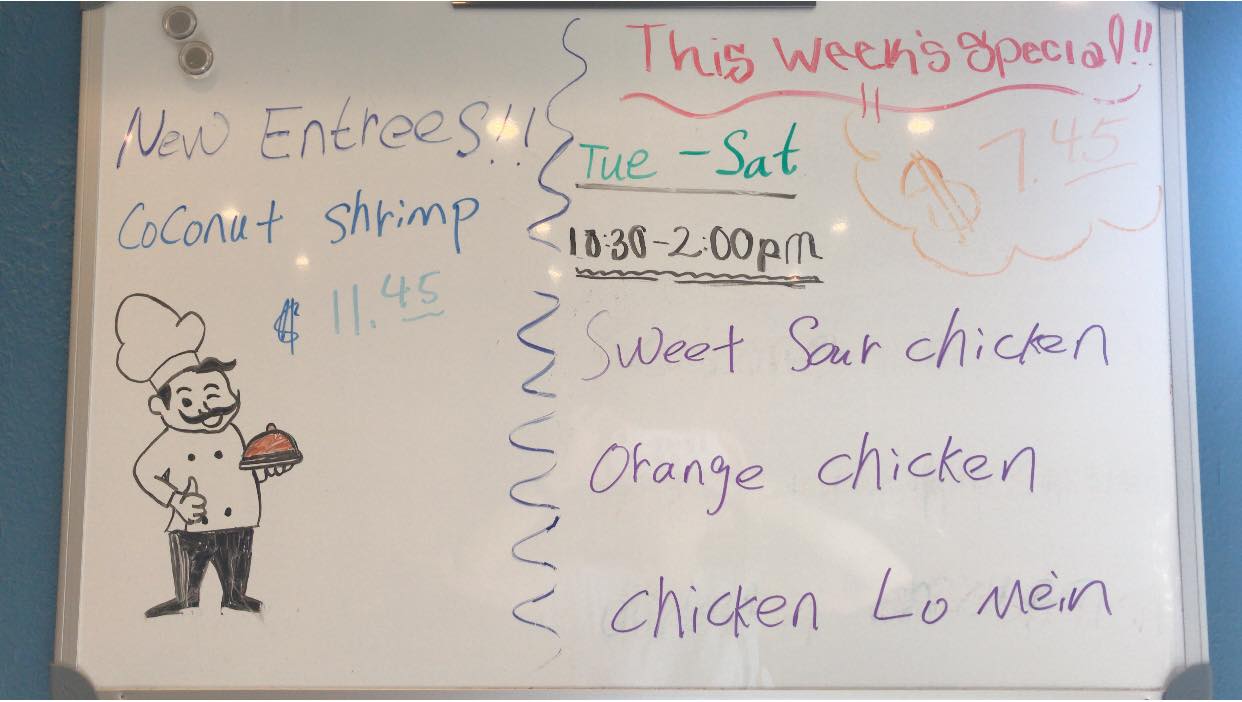 New Entrees!!
Coconut shrimp
$ 11.45
This Week's Special!!
Tue - Sat
$ 7.45
10:30-2:00pm
Sweet Sour chicken
Orange chicken
chicken Lo Mein